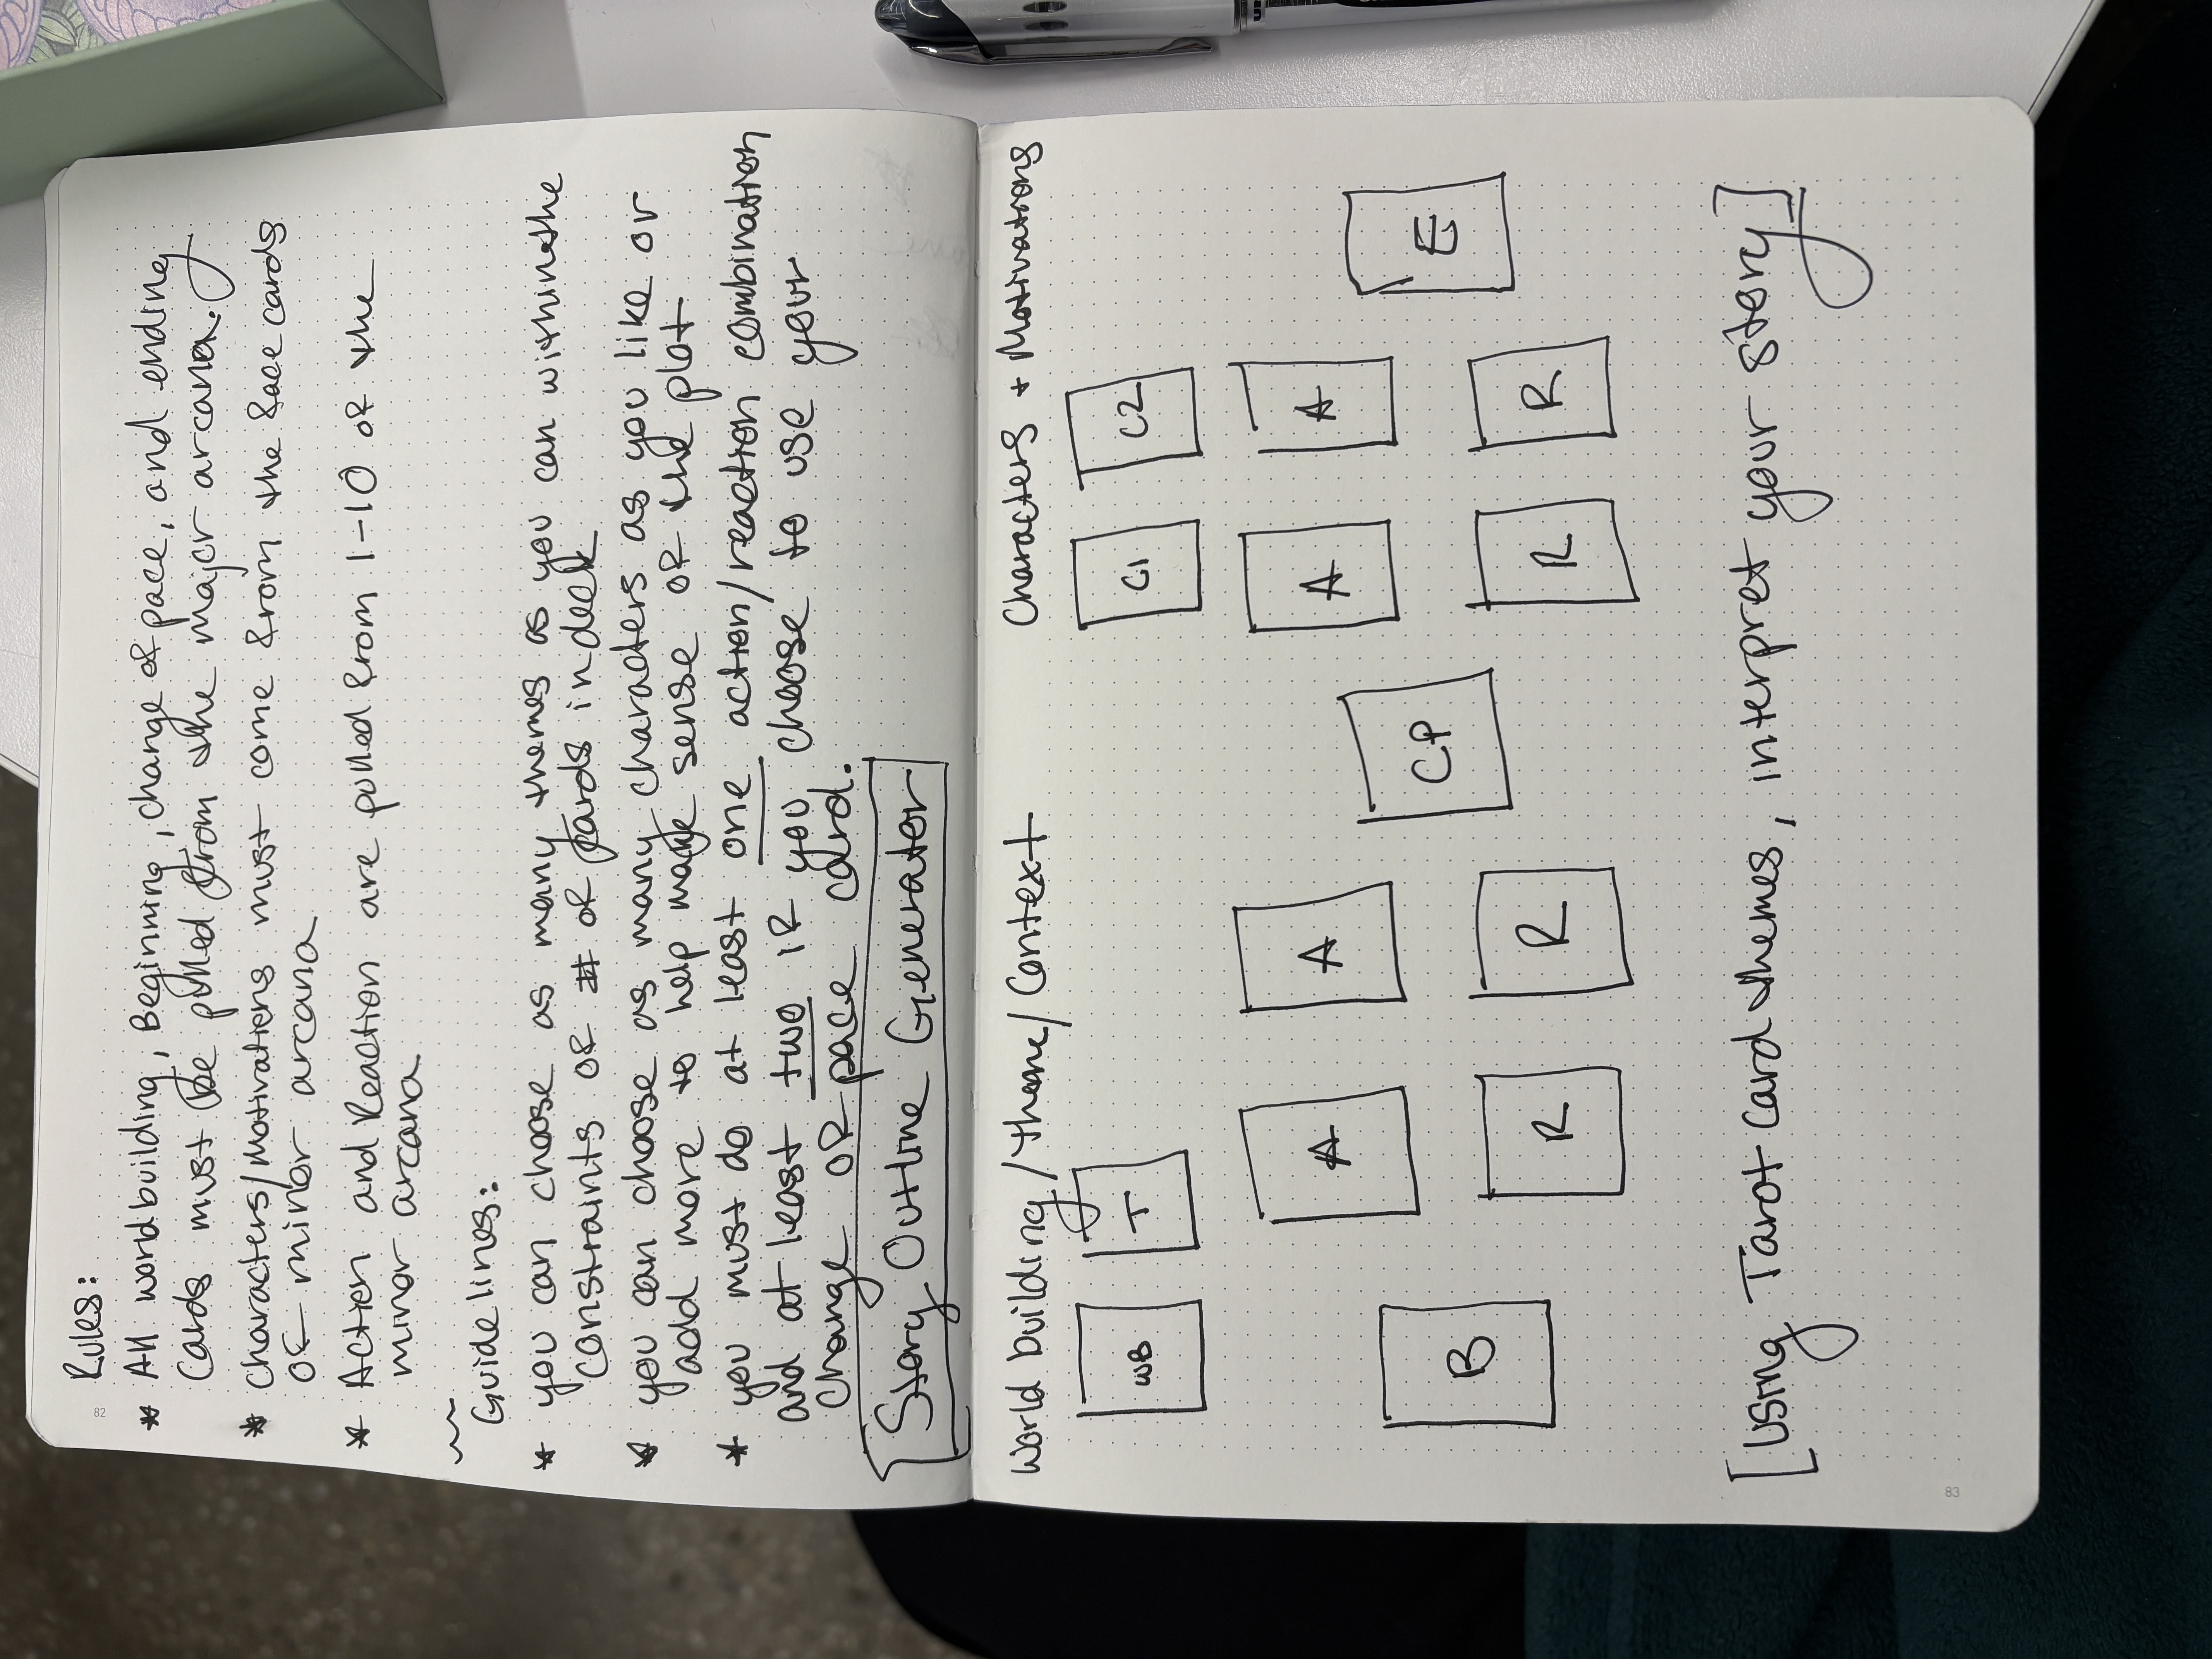 82
Rules:
* All world building, Beginning, change of pace, and ending
cards must be pulled from the major arcana.
* Characters/Motivations must come from the face cards
of minor arcana
* Action and Reaction are pulled from 1-10 of the
minor arcana
Guidelines:
* you can choose as many themes as you can within the
constraints of # of cards in deck
* you can choose as many characters as you like or
add more to help make sense of the plot
* you must do at least one action/reaction combination
and at least two if you choose to use your
change of pace card.
Story Outline Generator
World building/theme/Context
Characters + Motivations
WB
T
C1
C2
A
A
A
A
B
CP
E
R
R
R
R
[Using Tarot Card themes, interpret your story]
83